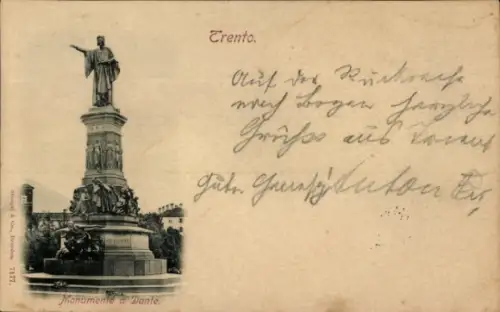 Trento.
Auf der Rückreise
nach Bozen herzliche
Gruß aus Trient
Anton
Monumento a Dante.
7177.